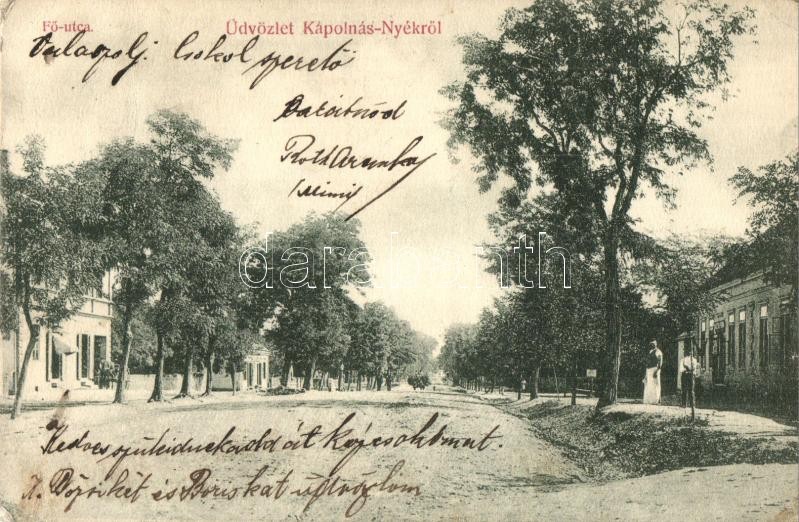 Fő-utca.
Üdvözlet Kápolnás-Nyékről
Válaszolj. Csókol szerető
barátnőd
Roth Aranka
darabanth
Kedves szüleidnek add át kézcsókomat.
és Boriskát üdvözlöm